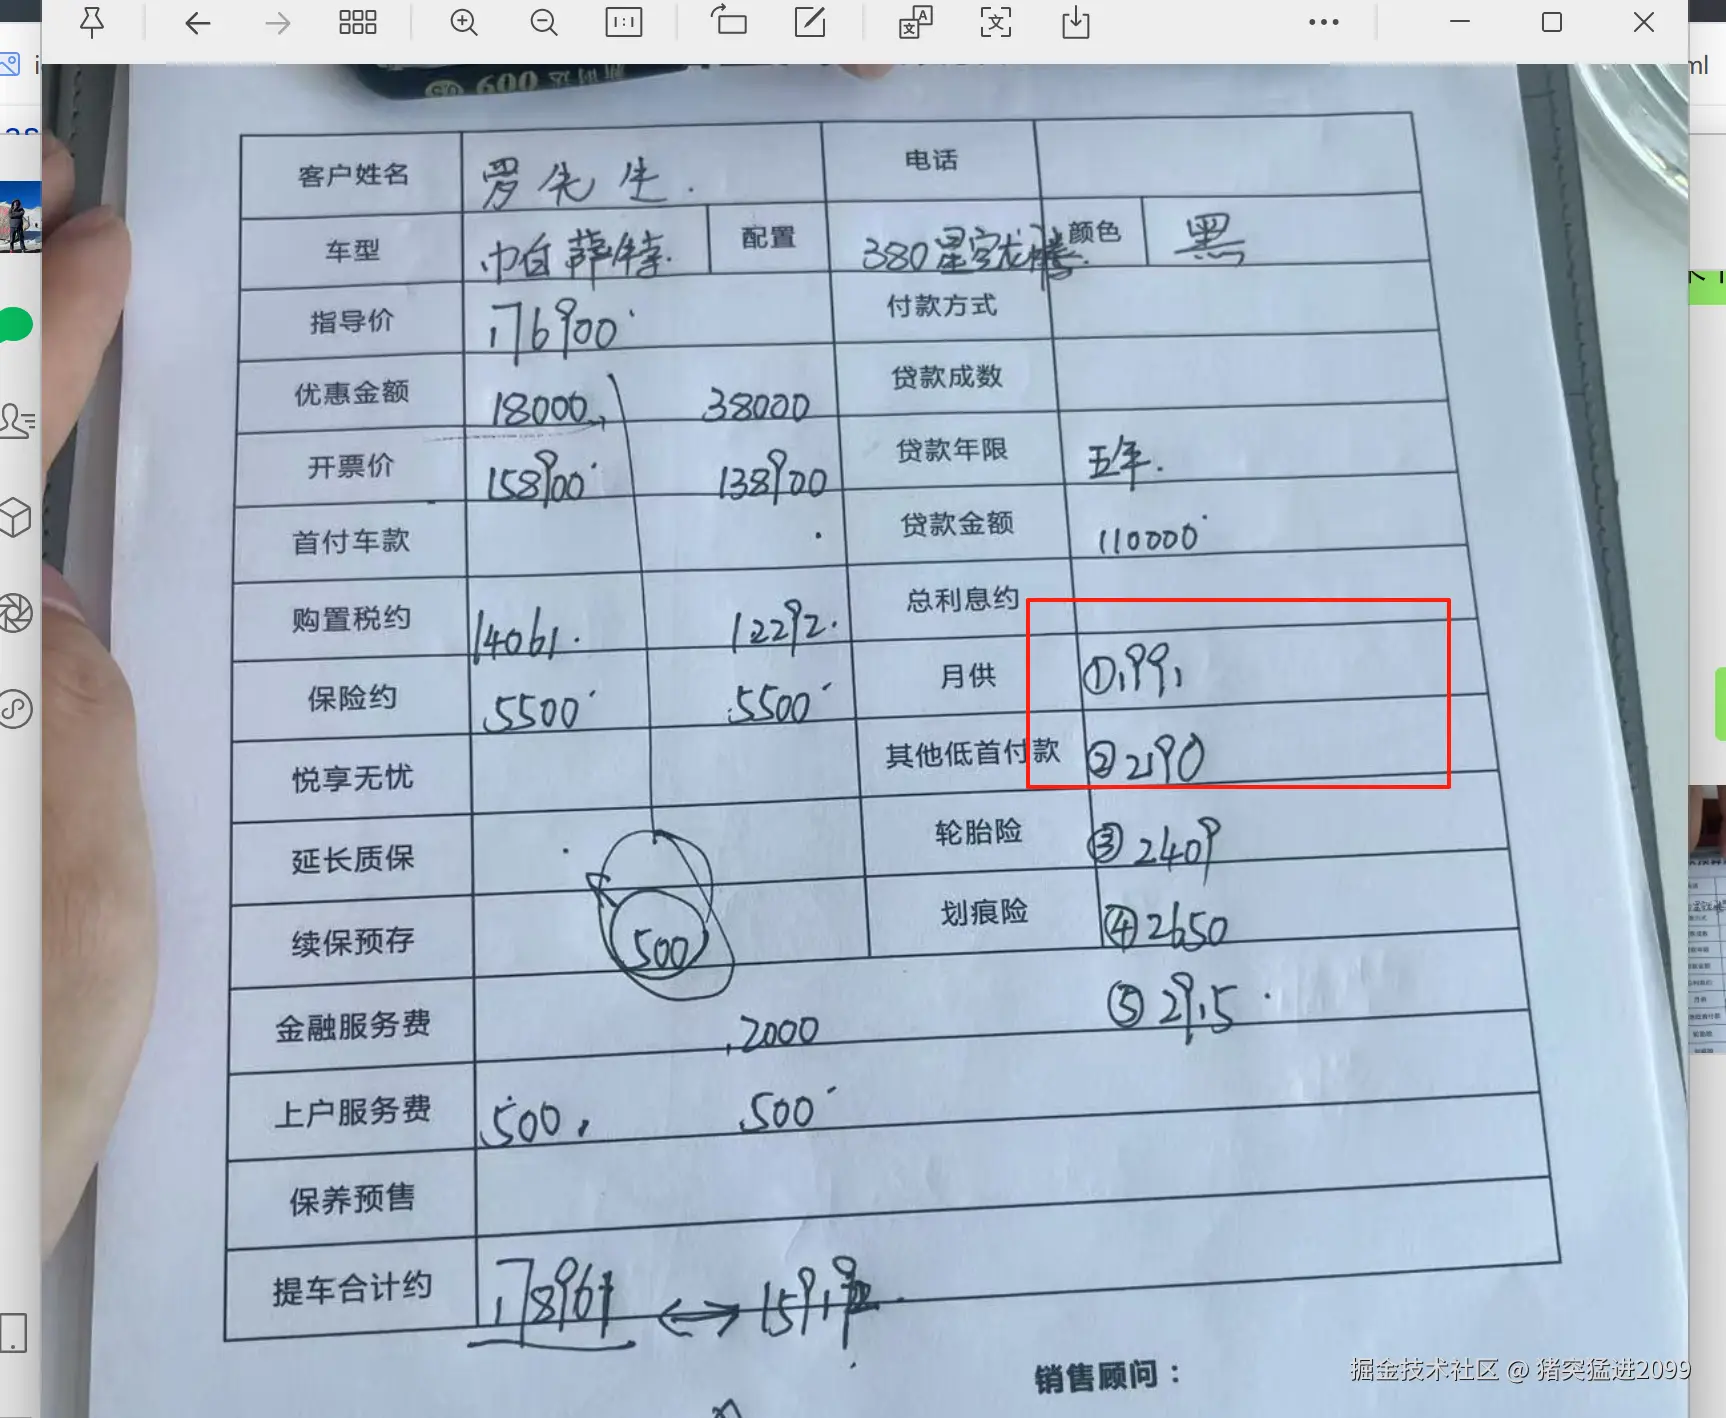 ml
as
600
客户姓名 罗先生. 电话
车型 巾白萨特. 配置 380星空龙腾. 颜色 黑
指导价 176900 付款方式
优惠金额 18000 38000 贷款成数
开票价 158900 138900 贷款年限 五年.
首付车款 贷款金额 110000
购置税约 14061. 12292. 总利息约
保险约 5500 5500 月供 ①1991
悦享无忧 其他低首付款 ②2190
延长质保 轮胎险 ③2409
续保预存 500 划痕险 ④2650
金融服务费 2000 ⑤2915.
上户服务费 500, 500
保养预售
提车合计约 178961 ↔ 159192.
销售顾问：
掘金技术社区 @ 猪突猛进2099